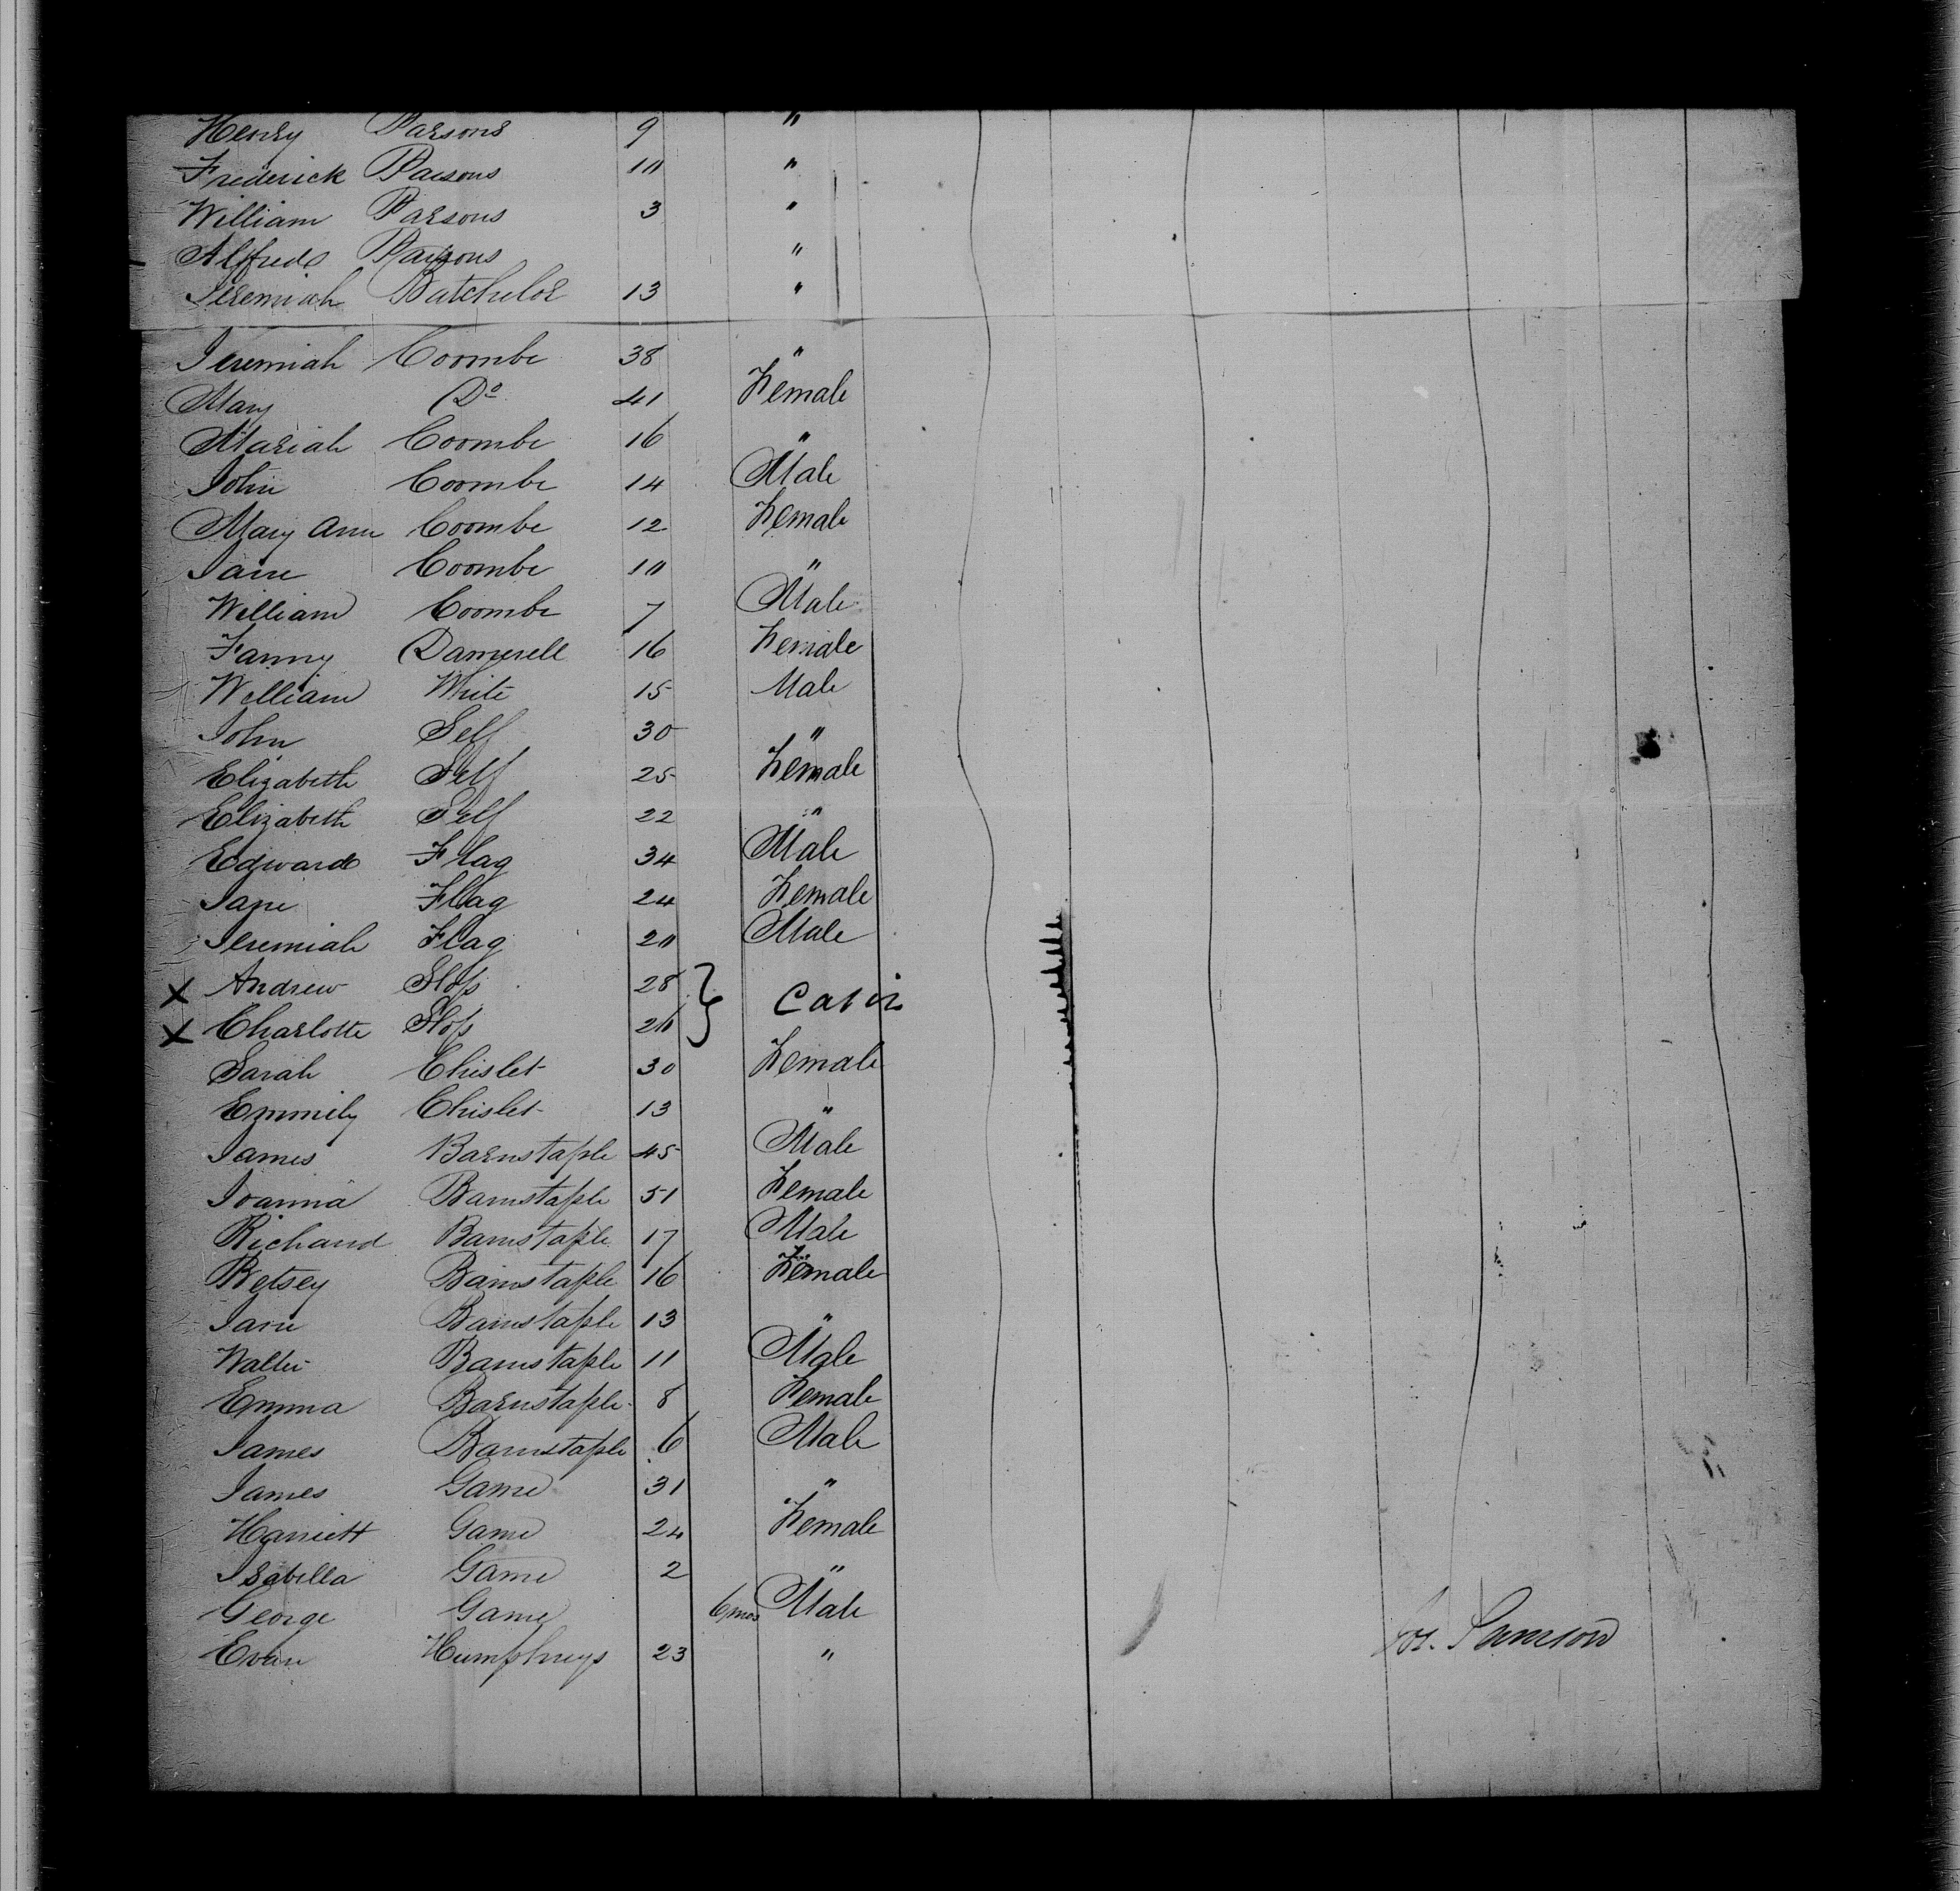 Henry Parsons 9 "
Frederick Parsons 10 "
William Parsons 3 "
Alfred Parsons "
Jeremiah Batchelor 13 "
Jeremiah Coombe 38 "
Mary Do 41 Female
Mariah Coombe 16 "
John Coombe 14 Male
Mary Ann Coombe 12 Female
Jane Coombe 10 "
William Coombe 7 Male
Fanny Damerell 16 Female
William White 15 Male
John Self 30 "
Elizabeth Self 25 Female
Elizabeth Self 22 "
Edward Flag 34 Male
Jane Flag 24 Female
Jeremiah Flag 20 Male
X Andrew 28 } Cabin
X Charlotte
Sarah Chislet 30 Female
Emmily Chislet 13 "
James Barnstaple 45 Male
Joanna Barnstaple 51 Female
Richard Barnstaple 17 Male
Betsey Barnstaple 16 Female
Jane Barnstaple 13 "
Walter Barnstaple 11 Male
Emma Barnstaple 8 Female
James Barnstaple 6 Male
James Game 31 "
Harriett Game 24 Female
Isabella Game 2 "
George Game 6 mos Male
Evan Humphreys 23 "
Samson